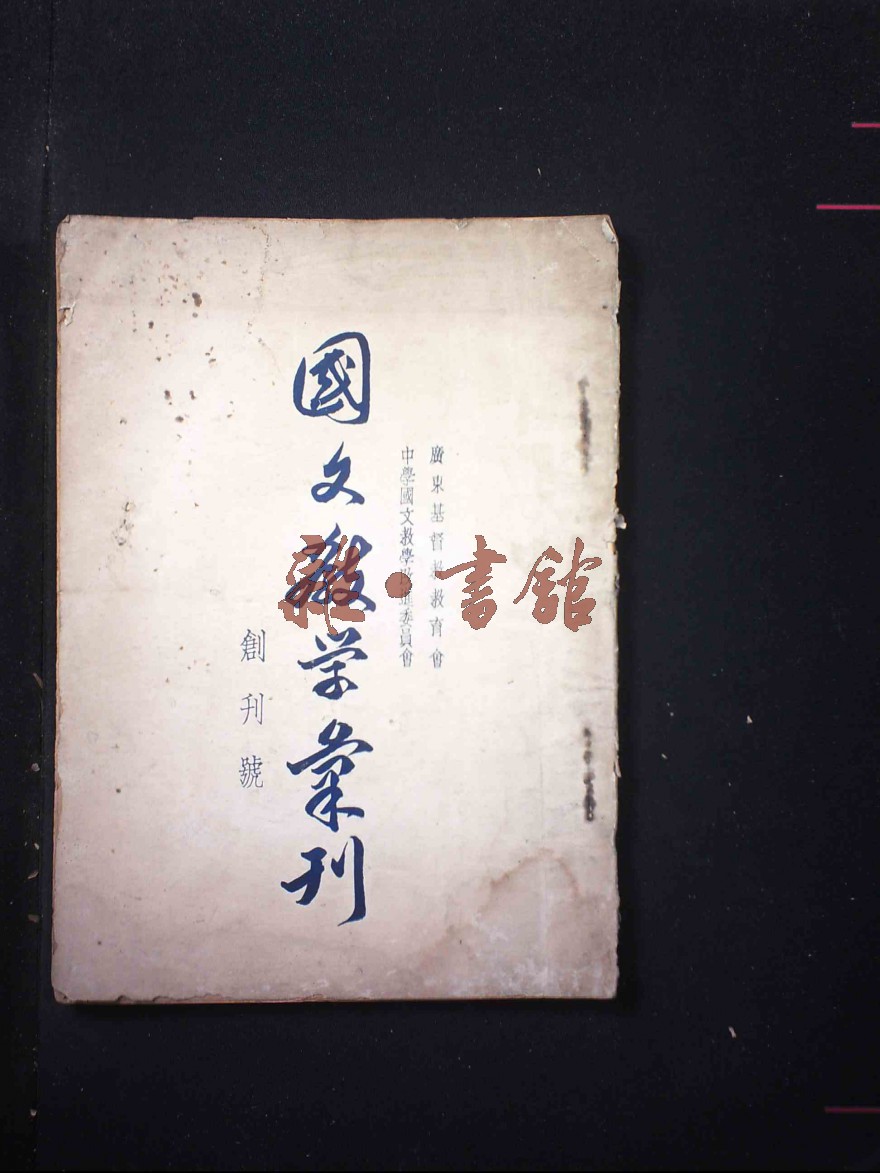 廣東基督教教育會
中學國文教學改進委員會
國文教学彙刊
創刊號
雜·書館